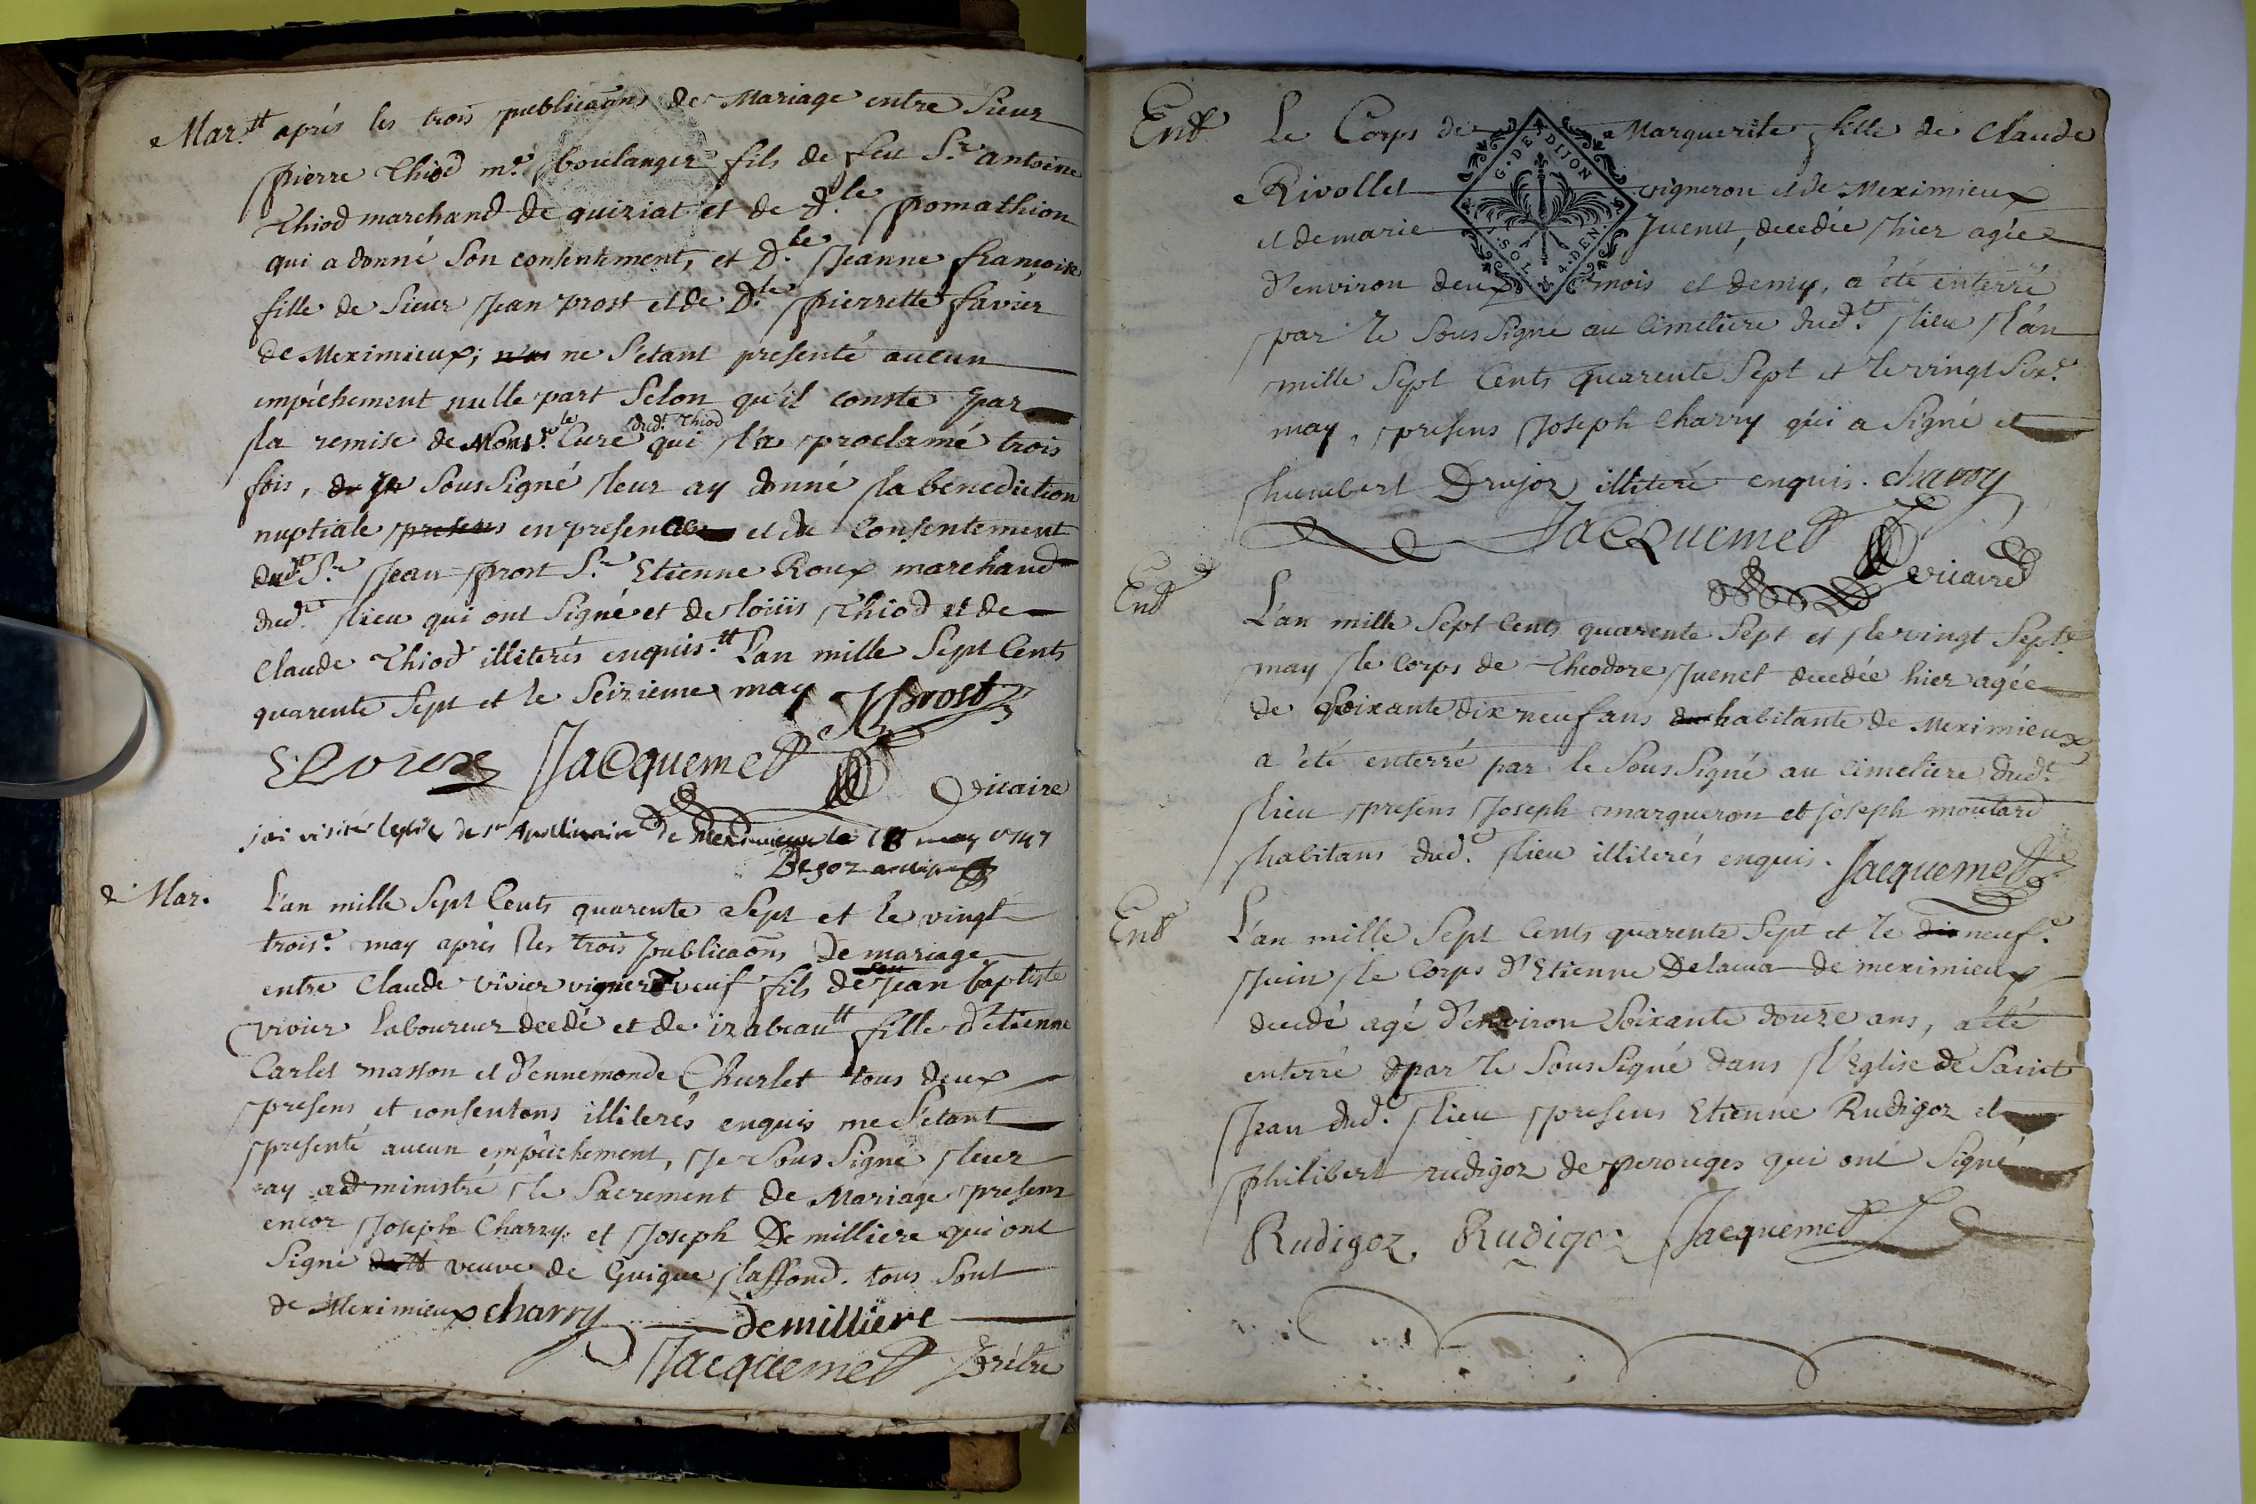 Mar.tt après les trois publicaõns de Mariage entre Sieur
pierre Thiod me. boulanger fils de feu Sr. antoine
Thiod marchand de quiriat et de D.le pomathion
qui a donné Son consentement, et D.le Jeanne françoise
fille de Sieur Jean prost et de D.le pierrette favier
de Meximieux; ne S'etant presenté aucun
empéchement nulle part Selon qu'il conste par
la remise de Mons.r le Curé dud.t Thiod qui l'a proclamé trois
fois, Je SousSigné leur ay donné la benediction
nuptiale presens en presence et du Consentement
dud.t S.r Jean prost S.r Etienne Roux marchand
dud.t lieu qui ont Signé et de loüis Thiod et de
Claude Thiod illiterés enquis.tt L'an mille Sept Cents
quarente Sept et le Seizieme may JProst
ERoux Jacquemet Vicaire
j'ai visité l'eglise de st Apollinaire de Meximieux le 18 may 1747
Begoz archipr
Mar. L'an mille Sept Cents quarente Sept et le vingt
trois.e may aprés les trois publicaõns de mariage
entre Claude vivier vigner veuf fils de feu Jean baptiste
vivier laboureur decdé et de izabeau tt fille d'etienne
Carlet masson et d'ennemonde Churlet tous deux
presens et consentans illiterés enquis ne S'etant
presenté aucun empêchement, Je SousSigné leur
ay administré le Sacrement de Mariage presens
encor Joseph Charry et Joseph Demilliere qui ont
Signé veuve de Guigue laffond. tous Sont
de Meximieux charry demilliere
Jacquemet Prétre
Ent Le Corps de Marguerite fille de Claude
Rivollet vigneron et de Meximieux
et de marie Juenet, decedée hier agée
d'environ deux mois et demy, a été enterré
par le SousSigné au Cimetiere dud.t lieu l'an
mille Sept Cents quarente Sept et le vingt Six.e
may, presens Joseph Charry qui a Signé et
humbert Drujon illiteré enquis. charry
Jacquemet vicaire
Ent L'an mille Sept Cents quarente Sept et le vingt Sept.e
may le Corps de Theodore Juenet decedée hier agée
de Soixante dix neuf ans habitante de Meximieux
a été enterré par le SousSigné au Cimetiere dud.t
lieu presens Joseph marqueron et joseph moutard
habitans dud.t lieu illiterés enquis. Jacquemet
Ent L'an mille Sept Cents quarente Sept et le neuf.e
Juin le Corps d'Etienne Delacua de meximieux
decedé agé d'environ Soixante douze ans, a été
enterré par le SousSigné dans l'Eglise de Saint
Jean dud.t lieu presens Etienne Rudigoz et
philibert rudigoz de perouges qui ont Signé
Rudigoz. Rudigoz Jacquemet
G. DE DIJON
1. SOL 4. DEN.